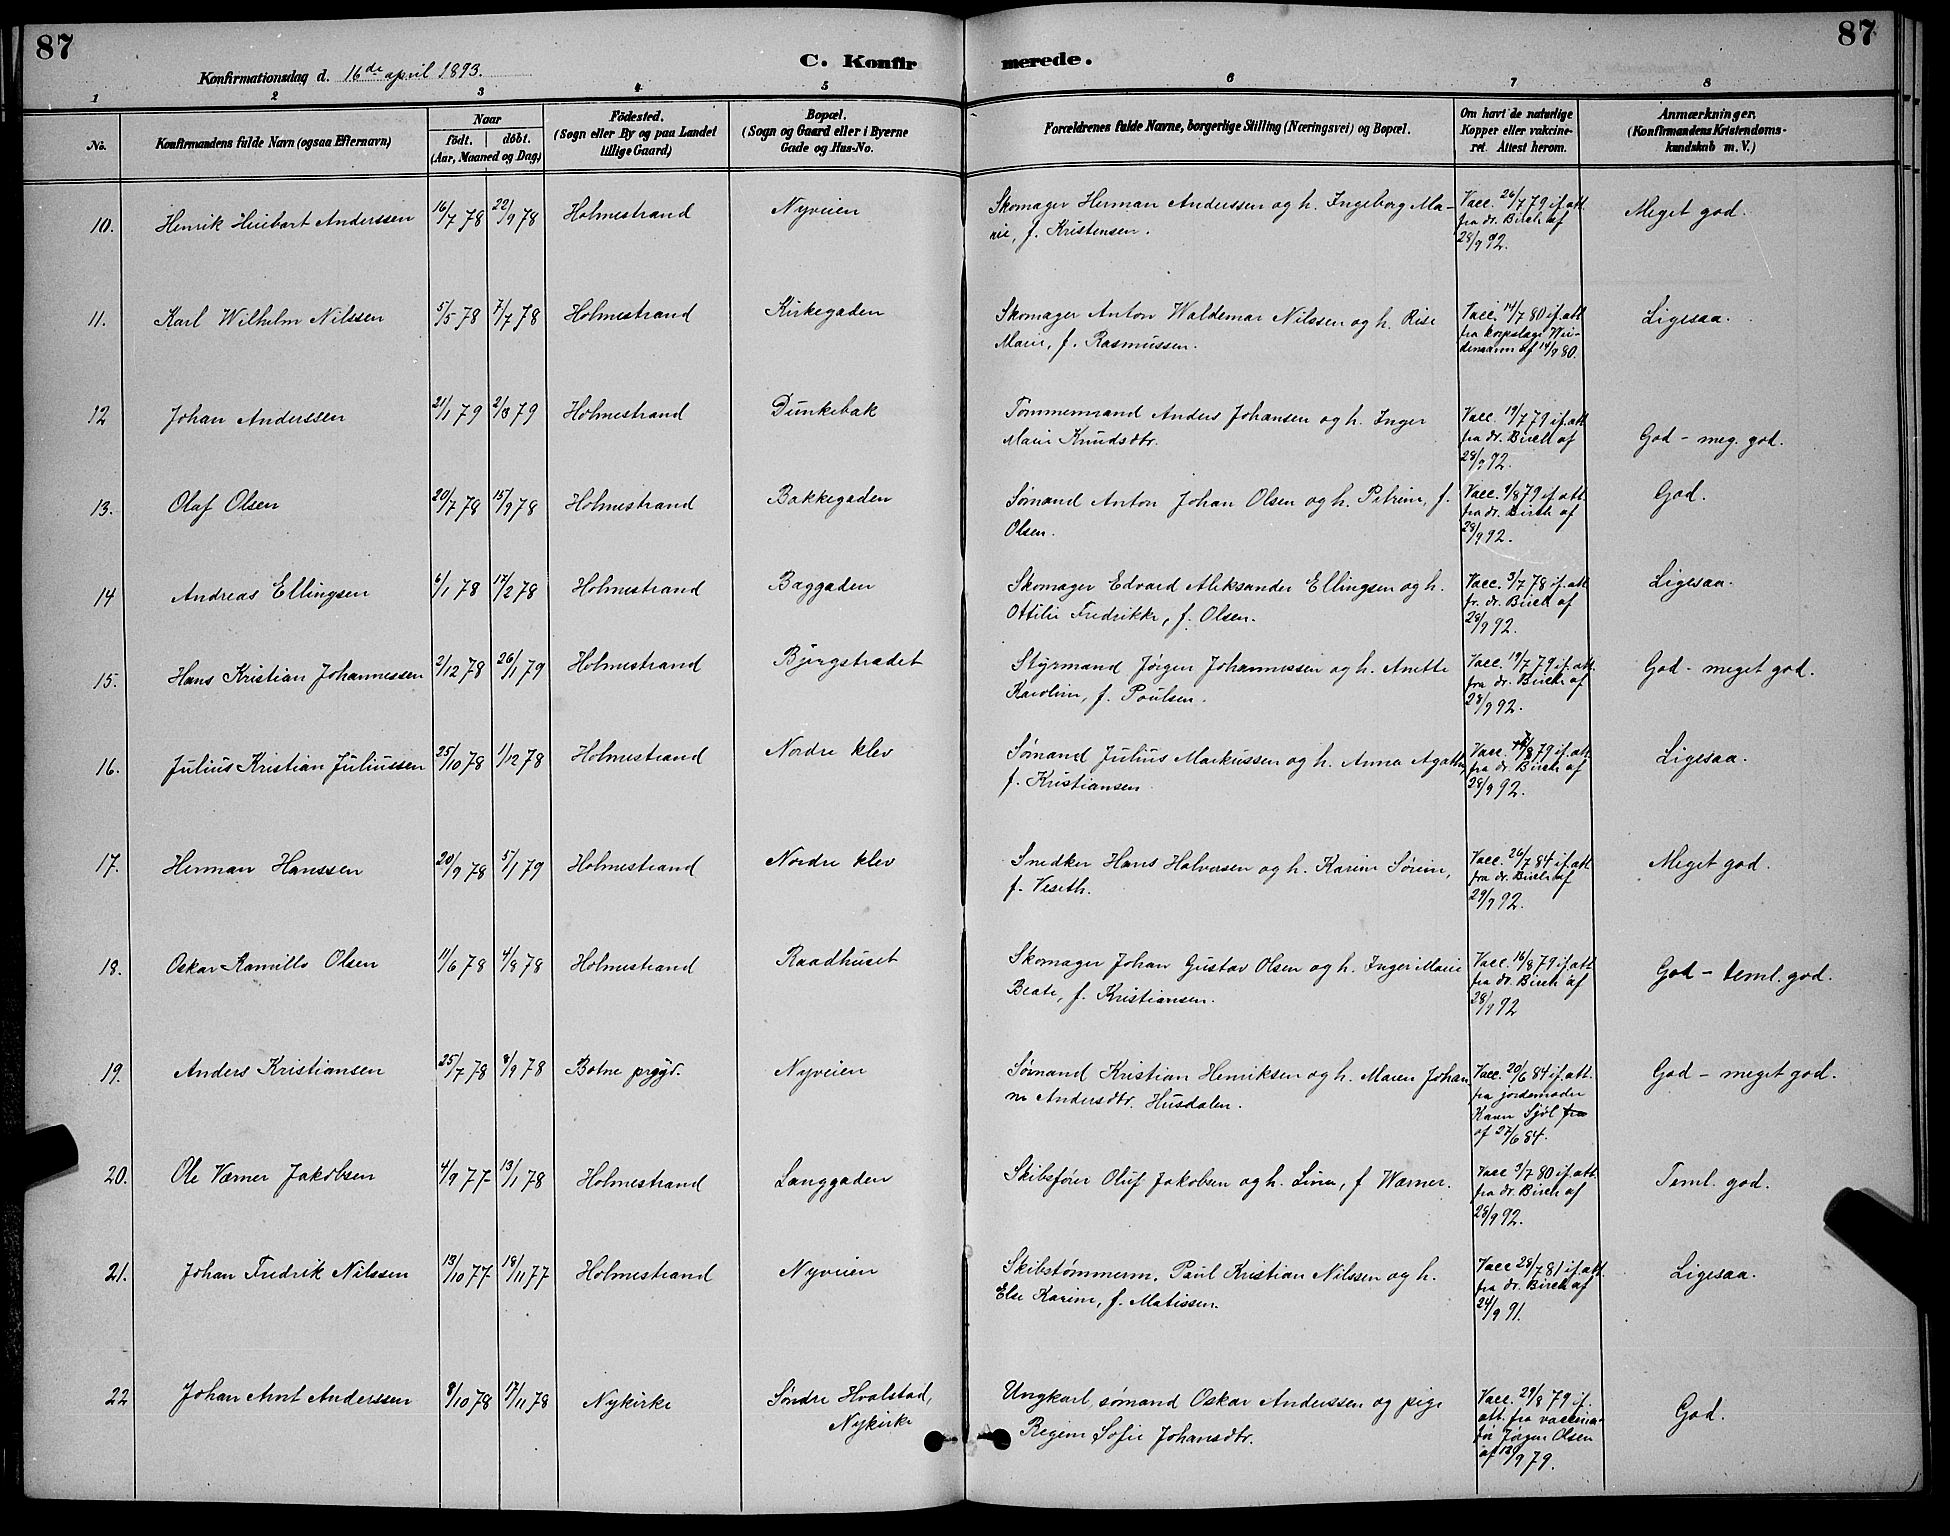 87
87
C. Konfir merede.
Konfirmationsdag d. 16de april 1893.
1 2 3 4 5 6 7 8
No.
Konfirmandens fulde Navn (ogsaa Efternavn)
Naar
födt. döbt.
(Aar, Maaned og Dag)
Födested.
(Sogn eller By og paa Landet
tillige Gaard)
Bopæl.
(Sogn og Gaard eller i Byerne
Gade og Hus-No.
Forældrenes fulde Navne, borgerlige Stilling (Næringsvei) og Bopæl.
Om havt de naturlige
Kopper eller vakcine-
ret. Attest herom.
Anmærkninger.
(Konfirmandens Kristendoms-
kundskab m. V.)
10. Henrik Huibart Anderssen 16/7 78 22/9 78 Holmestrand Nyveien
Skomager Herman Anderssen og h. Ingeborg Ma-
rie, f. Kristensen.
Vacc. 26/7 79 if. att.
fra dr. Birch af
28/9 92.
Meget god.
11. Karl Wilhelm Nilssen 5/5 78 7/7 78 Holmestrand Kirkegaden
Skomager Anton Waldemar Nilssen og h. Rise
Marie, f. Rasmussen.
Vacc. 14/7 80 if. att
fra korpslæge Wei-
denaann af 14/9 80.
Ligesaa.
12 Johan Anderssen 21/1 79 2/3 79 Holmestrand Dunkebak
Tømmermand Anders Johansen og h. Inger
Marie Knudsdtr.
Vacc. 19/7 79 if. att
fra dr. Birch af
28/9 92.
God - meg. god.
13. Olaf Olsen 20/7 78 15/9 78 Holmestrand Bakkegaden
Sømand Anton Johan Olsen og h. Petrine, f.
Olsen.
Vacc. 9/8 79 if. att.
fra dr. Birch af
28/9 92.
God.
14 Andreas Ellingsen 6/1 78 17/2 78 Holmestrand Baggaden
Skomager Edvard Aleksander Ellingsen og h.
Ottilie Fredrikke, f. Olsen.
Vacc. 3/7 78 if. att
fr. dr. Birch af
28/9 92.
Ligesaa.
15. Hans Kristian Johannessen 2/12 78 26/1 79 Holmestrand Bjergstrædet
Styrmand Jørgen Johannessen og h. Anette
Karoline, f. Poulsen.
Vacc. 19/7 79 if. att.
fra dr. Birch af
28/9 92.
God - meget god.
16. Julius Kristian Juliussen 25/10 78 1/12 78 Holmestrand Nordre klev
Sømand Julius Markussen og h. Anna Agathe
f. Kristiansen
Vacc. /8 79 if. att.
fra dr. Birch af
28/9 92.
Ligesaa.
17. Herman Hanssen 20/9 78 5/1 79 Holmestrand Nordre klev
Snedker Hans Halvorsen og h. Karine Sørine,
f. Veseth.
Vacc. 26/7 84 if. att
fra dr. Birch af
29/9 92.
Meget god.
18. Oskar Kamillo Olsen 11/6 78 4/8 78 Holmestrand Raadhuset
Skomager Johan Gustav Olsen og h. Inger Marie
Beate, f. Kristiansen.
Vacc. 16/8 79 if. att
fra dr. Birch af
28/9 92
God - teml. god.
19. Anders Kristiansen 25/7 78 8/9 78 Botne prgjd. Nyveien
Sømand Kristian Henriksen og h. Maren Johan
ne Andersdtr. Husdalen.
Vacc. 20/6 84 if. att.
fra jordemoder
Karen Sjøl fra
af 27/6 84.
God - meget god.
20. Ole Værner Jakobsen 4/9 77 13/1 78 Holmestrand Langgaden
Skibsfører Oluf Jakobsen og h. Lina, f Wærner.
Vacc 3/7 80 if. att.
fra dr. Birch af
28/9 92.
Teml. god.
21. Johan Fredrik Nilssen 13/10 77 18/11 77 Holmestrand Nyveien
Skibstømmerm. Paul Kristian Nilssen og h.
Else Karine, f. Matissen.
Vacc 28/7 81 if. att.
fra dr. Birch af
24/9 91.
Ligesaa.
22 Johan Arnt Anderssen 8/10 78 17/11 78 Nykirke Søndre Hvalstad,
Nykirke
Ungkarl sømand Oskar Anderssen og pige
Regine Sofie Johansdtr.
Vacc. 29/8 79 if.
att. fra vaccina-
tør Jørgen Olsen
af 13/9 79.
God.